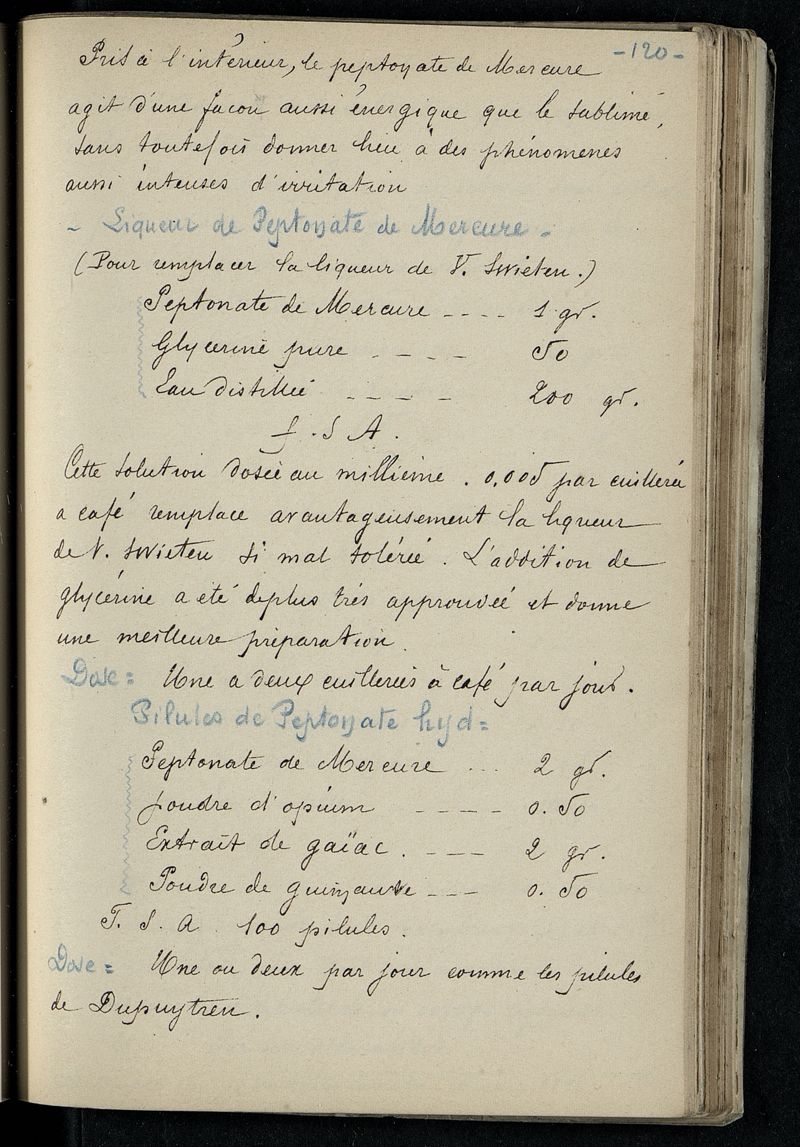 -120-
Pris à l'intérieur, le peptonate de Mercure
agit d'une façon aussi énergique que le sublimé,
sans toutefois donner lieu à des phénomènes
aussi intenses d'irritation
- Liqueur de Peptonate de Mercure -
(Pour remplacer la liqueur de V. Swieten.)
Peptonate de Mercure ---- 1 gr.
Glycerine pure ---- 50
Eau distillée ---- 200 gr.
f. S A.
Cette solution dosée au millième. 0,005 par cuillerée
a café remplace avantageusement la liqueur
de V. Swieten si mal tolérée. L'addition de
glycérine a été deplus très approuvée et donne
une meilleure préparation.
Dose = Une a deux cuillerées à café par jour.
Pilules de Peptonate hyd=
Peptonate de Mercure ... 2 gr.
poudre d'opium ----- 0.50
Extrait de gaïac. --- 2 gr.
Poudre de guimauve --- 0.50
F. S. A. 100 pilules.
Dose = Une ou deux par jour comme les pilules
de Dupuytren.